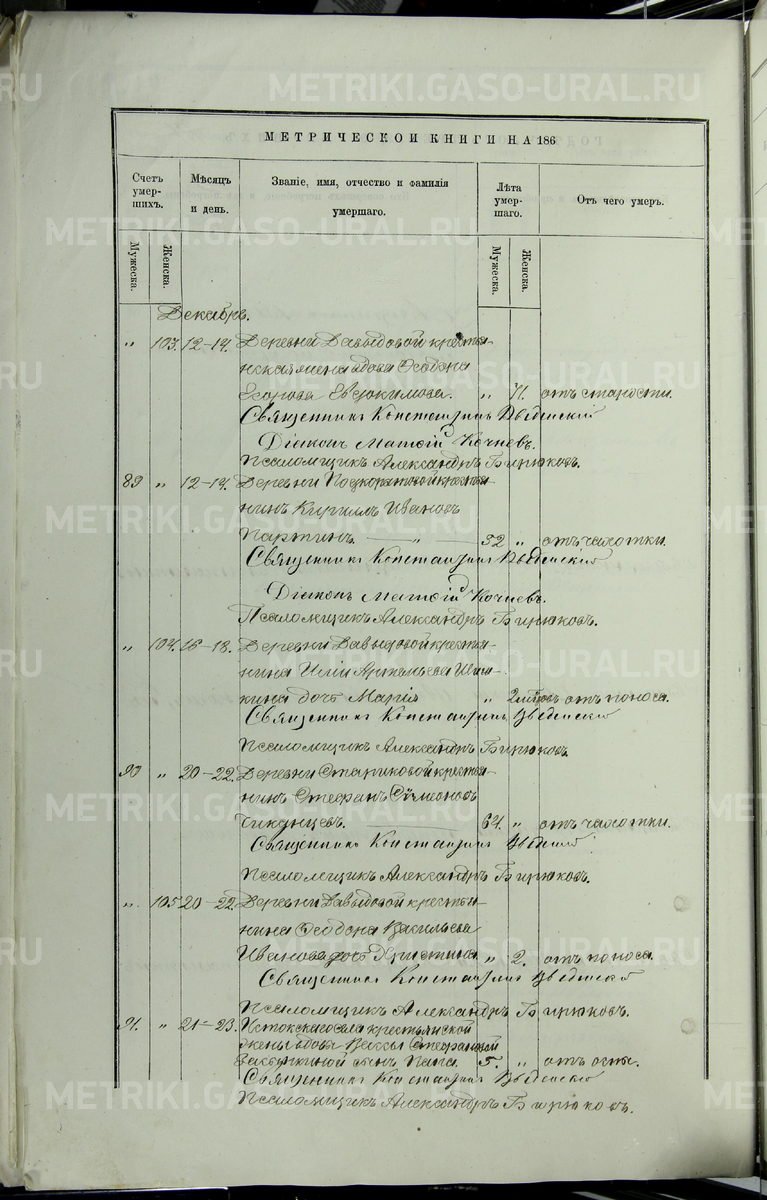 METRIKI.GASO-URAL.RU
МЕТРИЧЕСКОЙ КНИГИ НА 186
Счетъ умер-шихъ.
Мѣсяцъ и день.
Званіе, имя, отчество и фамилія умершаго.
Лѣта умер-шаго.
Отъ чего умеръ.
Мужеска. Женска.
Мужеска. Женска.
Декабрь.
" 103. 12–14. Деревни Давыдовой кресть-
нская жена вдова Ѳеодора
Егорова Евдокимова. " 71. отъ старости.
Священникъ Константинъ Введенскій
Діаконъ Матѳій Кочневъ.
Псаломщикъ Александръ Бирюковъ.
89 " 12–14. Деревни кресть-
нинъ Кириллъ Ивановъ
Партинъ. — " — 32 " отъ чахотки.
Священникъ Константинъ Введенскій
Діаконъ Матѳій Кочневъ.
Псаломщикъ Александръ Бирюковъ.
" 104. 16–18. Деревни Давыдовой кресть-
нина Иліи Артемьева
кина дочь Марія " 2 отъ поноса.
Священникъ Константинъ Введенскій
Псаломщикъ Александръ Бирюковъ.
90 " 20–22. Деревни Стариковой кресть-
нинъ Стефанъ Сѵмеоновъ
Чикунцевъ. 64. " отъ чахотки.
Священникъ Константинъ Введенскій
Псаломщикъ Александръ Бирюковъ.
" 105 20–22. Деревни Давыдовой кресть-
нина Ѳеодора Васильева
Иванова дочь Христина " 2. отъ поноса.
Священникъ Константинъ Введенскій
Псаломщикъ Александръ Бирюковъ.
91. " 21–23. Истокскаго села крестьянской
жены вдовы Вассы Стефановой
сынъ 5. " отъ оспы.
Священникъ Константинъ Введенскій
Псаломщикъ Александръ Бирюковъ.